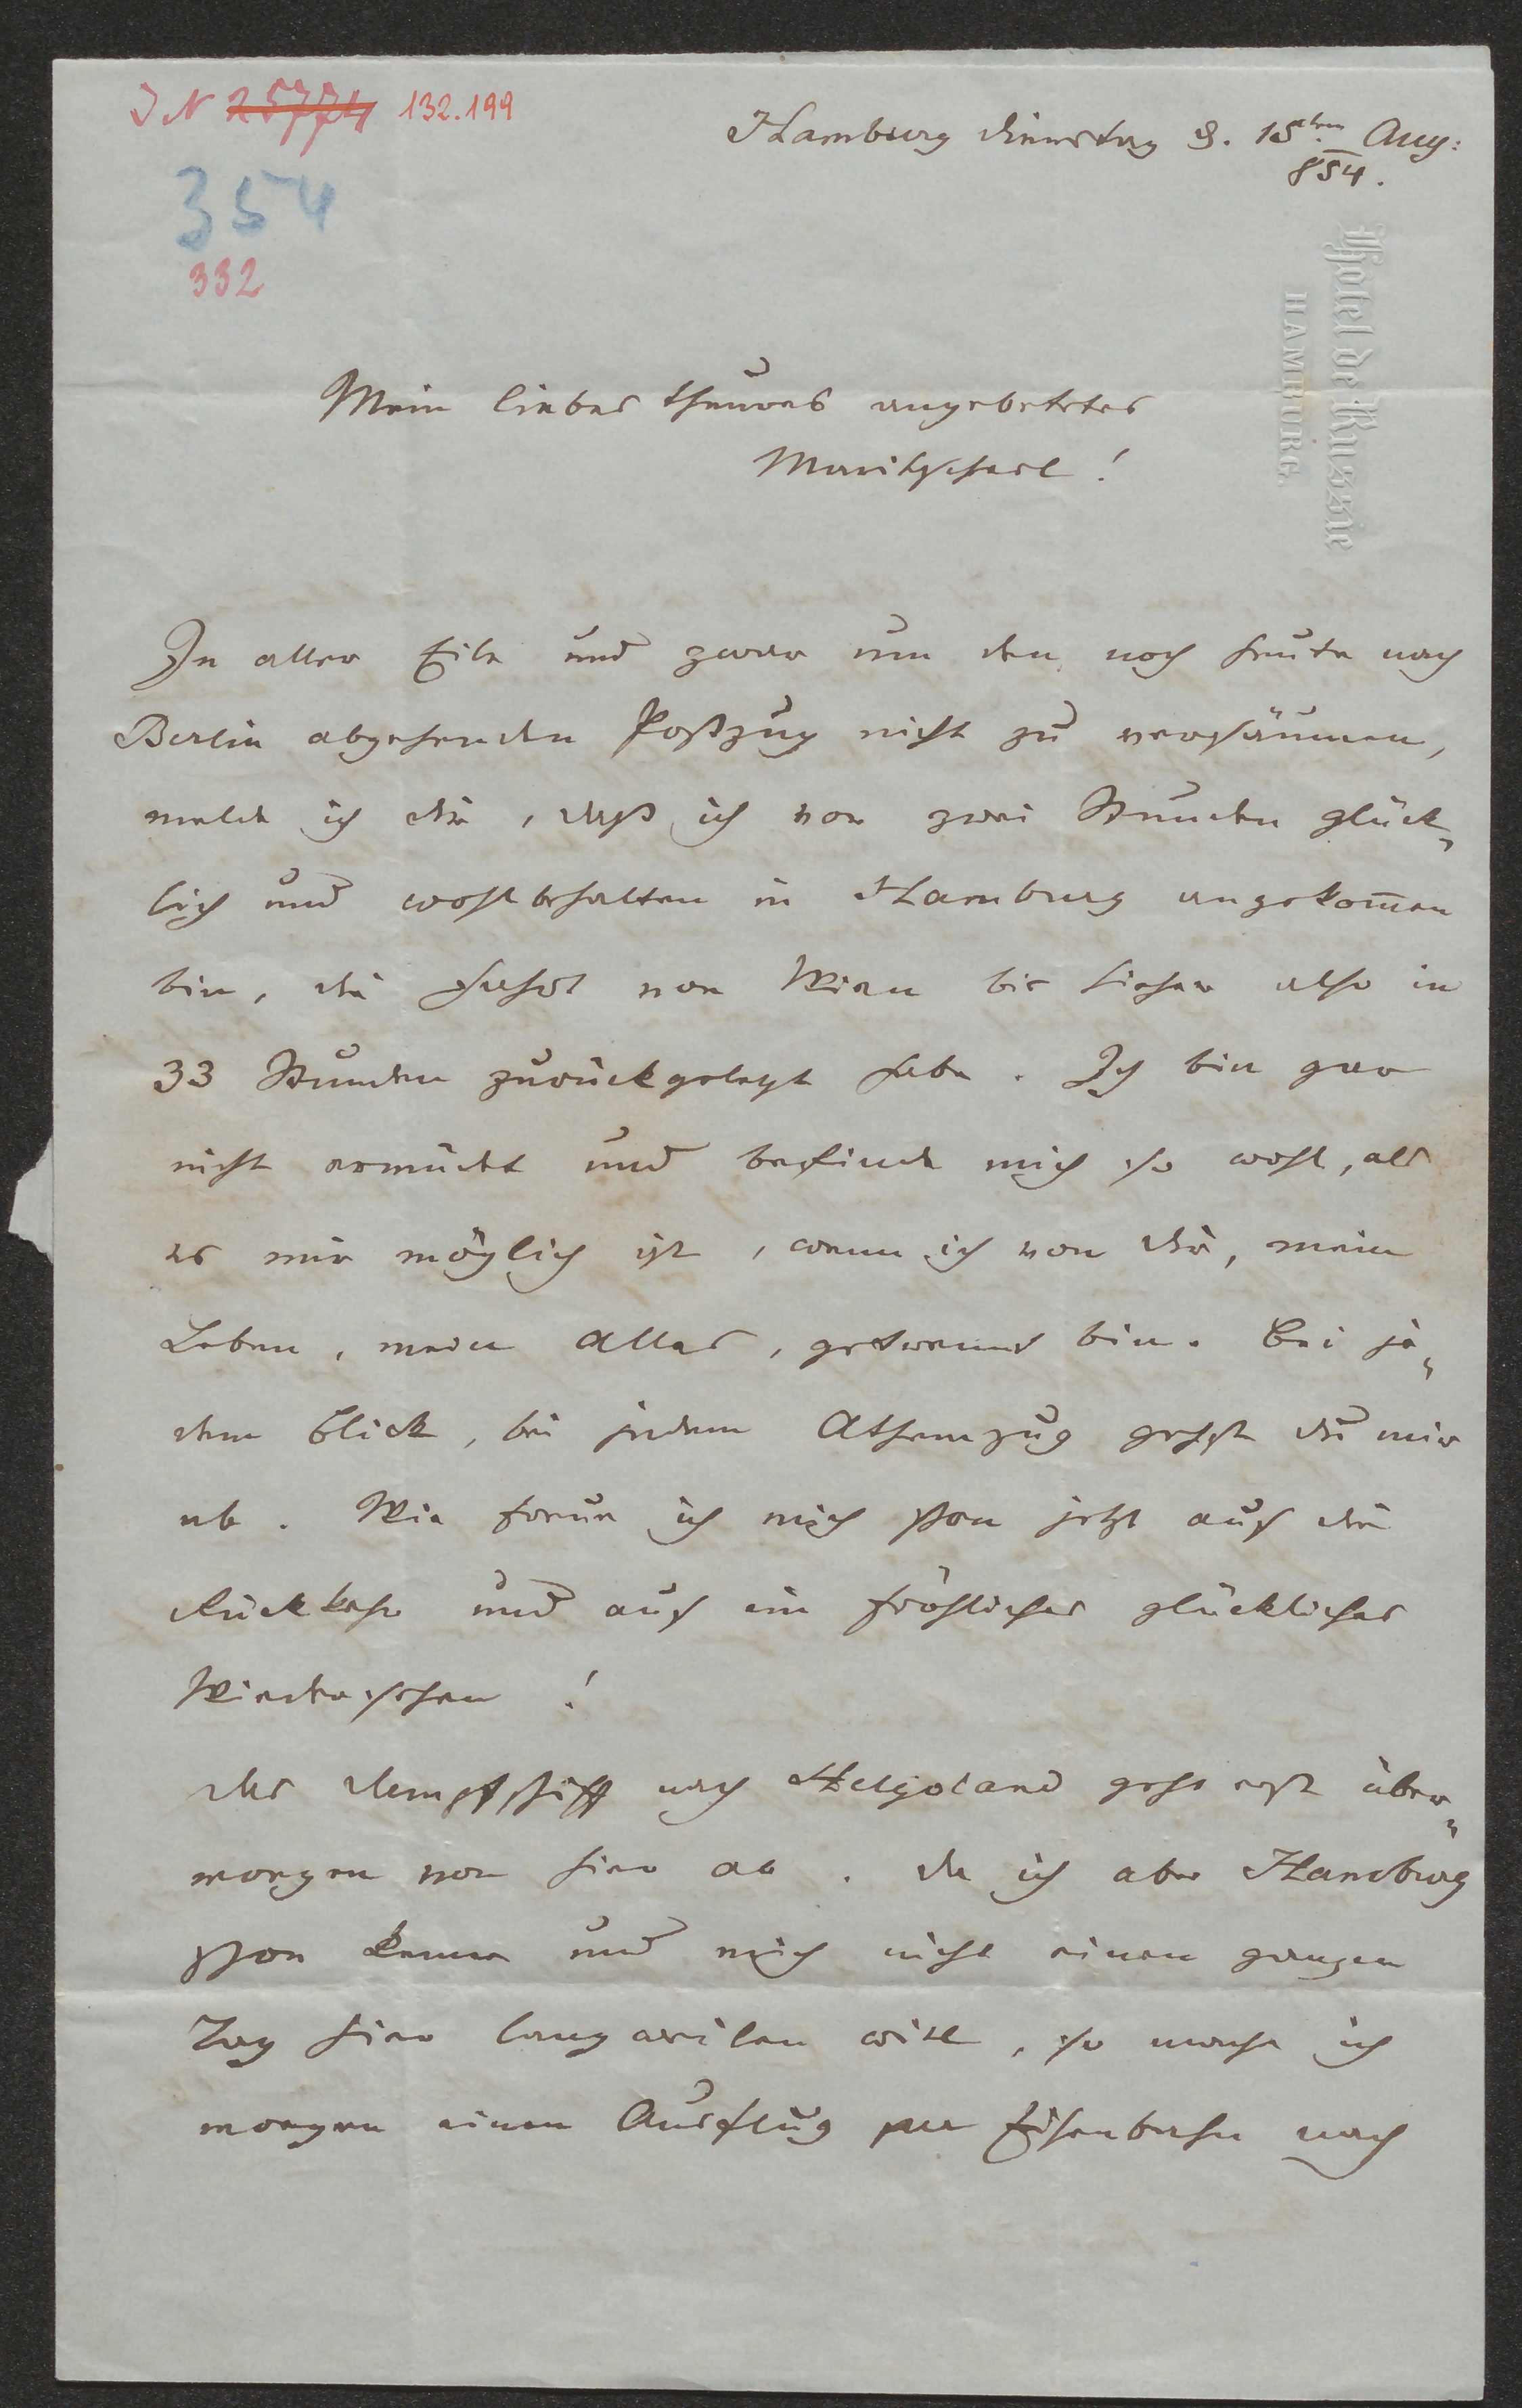 IN 25774 132.199
Hamburg Dienstag d. 15ten Aug:
854.
354
332
Hotel de Russie
HAMBURG.
Mein liebes theures angebetetes
Maritscherl!
In aller Eile und zwar um den noch heute nach
Berlin abgehenden Postzug nicht zu versäumen,
melde ich dir, daß ich vor zwei Stunden glück„
lich und wohlbehalten in Hamburg angekom̅en
bin, die Fahrt von Wien bis hieher also in
33 Stunden zurückgelegt habe. Ich bin gar
nicht ermüdet und befinde mich so wohl, als
es mir möglich ist, wenn ich von dir, mein
Leben, mein Alles, getrennt bin. Bei je„
dem Blick, bei jedem Athemzug gehst du mir
ab. Wie freue ich mich schon jetzt auf die
Rückkehr und auf ein fröhliches glückliches
Wiedersehen!
Das Dampfschiff nach Helgoland geht erst über„
morgen von hier ab. Da ich aber Hamburg
schon kenne und mich nicht einen ganzen
Tag hier langweilen will, so mache ich
morgen einen Ausflug per Eisenbahn nach